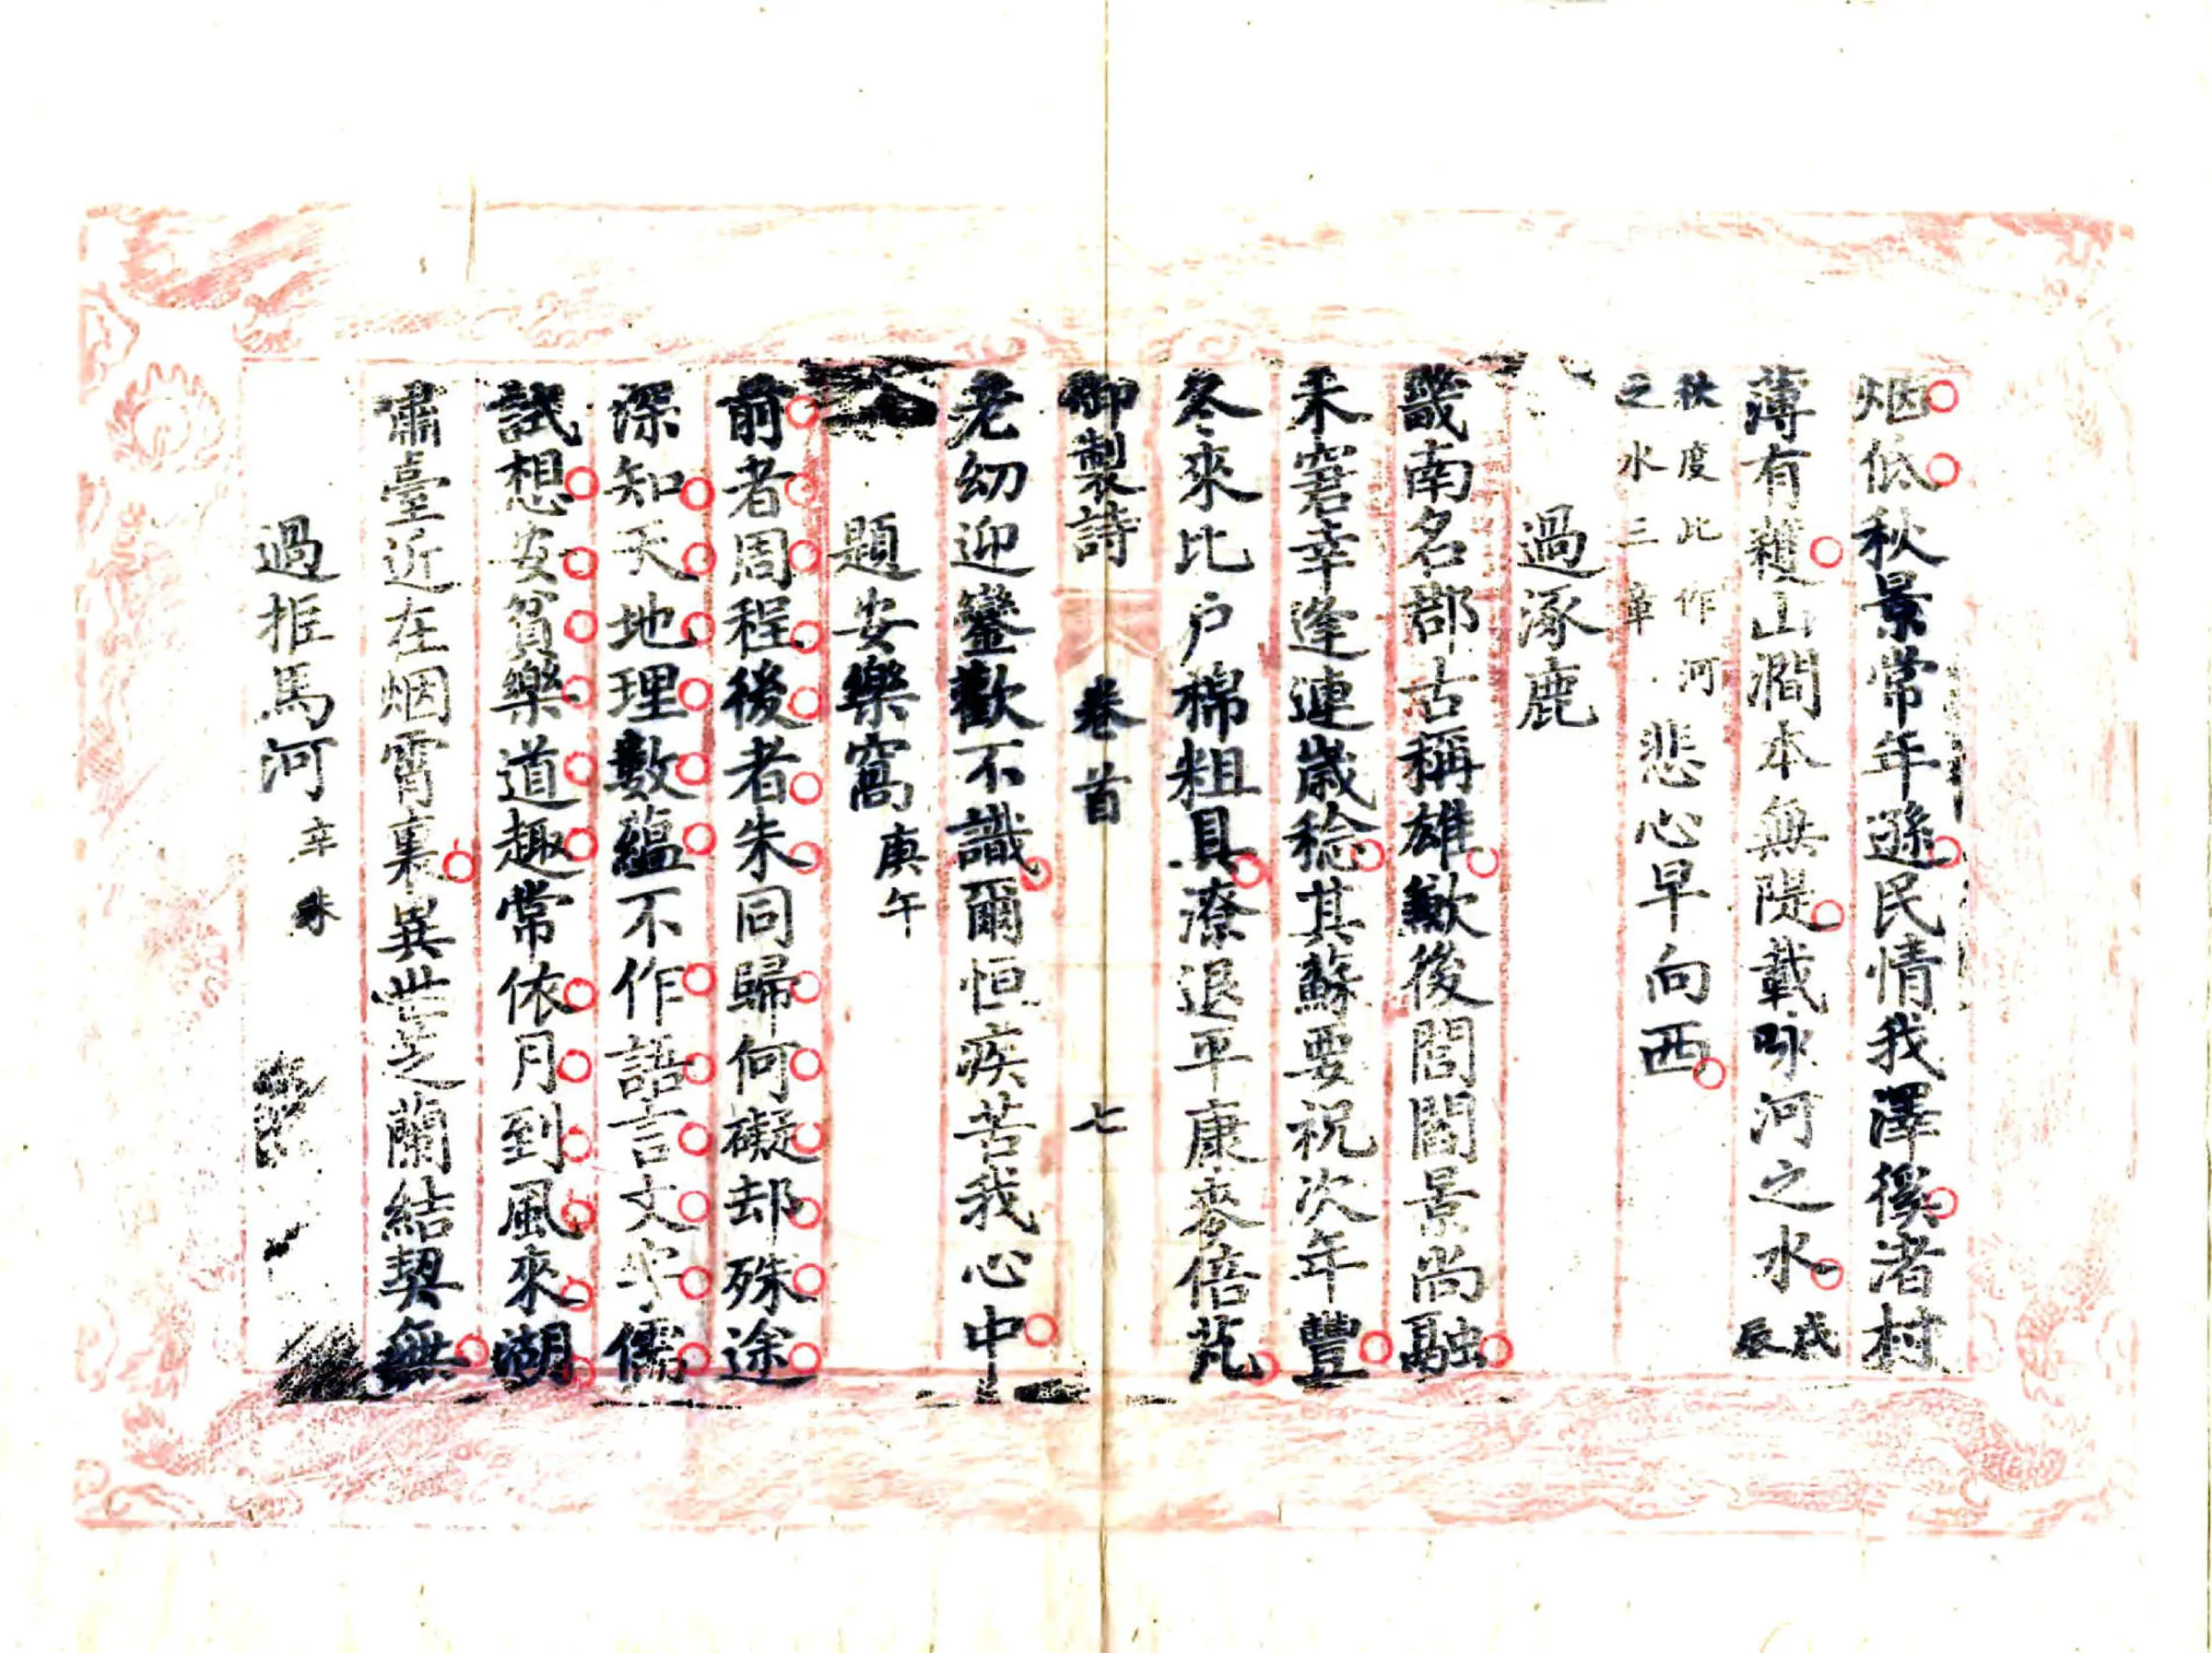 烟低秋景常年遜民情我澤徯渚村
薄有穫山澗本無隄載咏河之水戊辰
秋度此作河之水三章悲心早向西
過涿鹿
畿南名郡古稱雄歉後閭閻景尚融
未窘幸逢連歲稔其蘇要祝次年豐
冬來比戶棉粗具潦退平康麥倍芃
御製詩 卷首 七
老幼迎鑾歡不識爾恒疾苦我心中
題安樂窩庚午
前者周程後者朱同歸何礙却殊途
深知天地理數蘊不作語言文字儒
試想安貧樂道趣常依月到風來湖
嘯臺近在烟霄裏異世芝蘭結契無
過拒馬河辛未